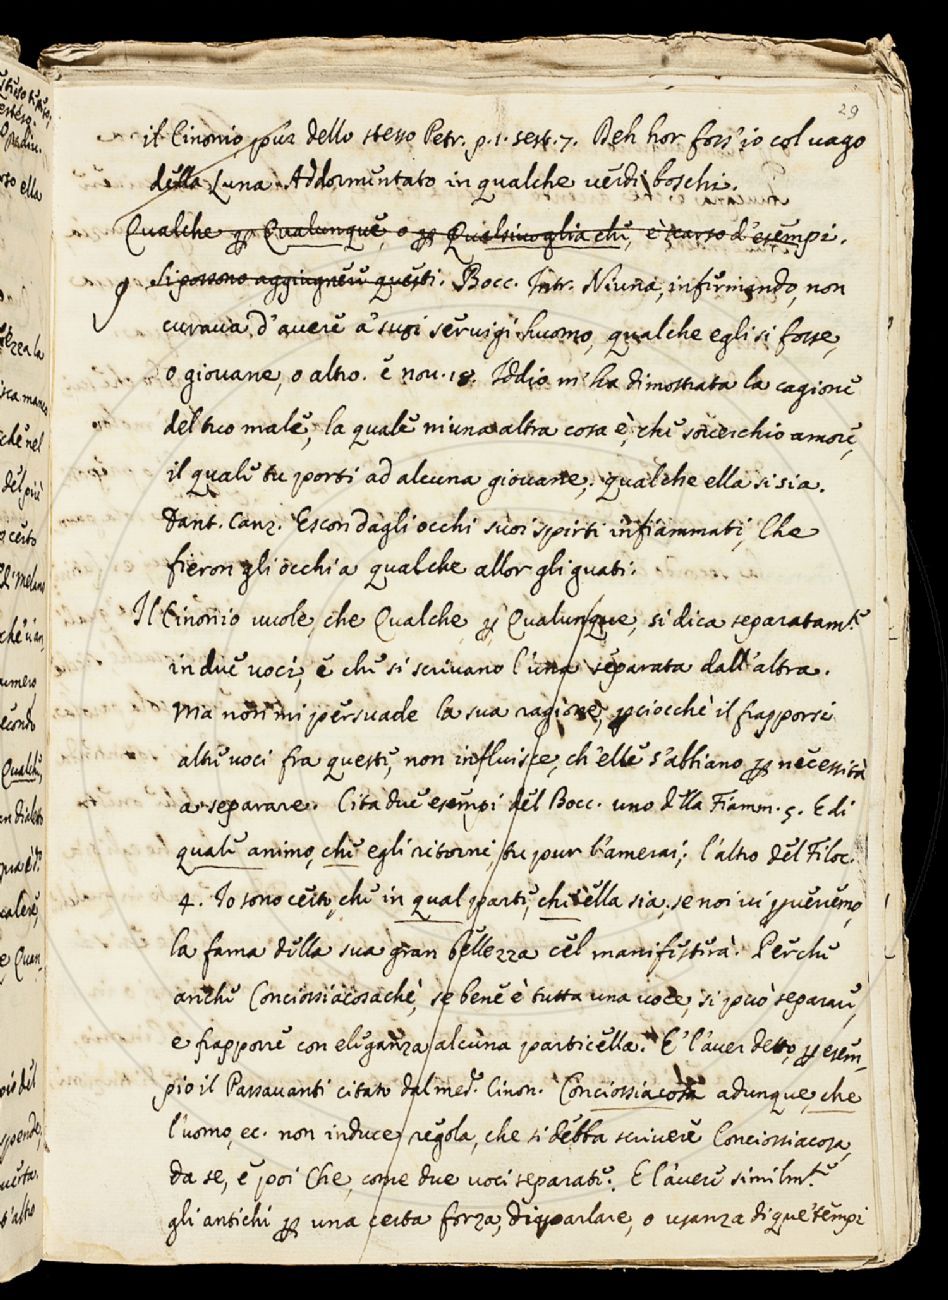 29
il Cinonio pur dello stesso Petr. p. 1. sest. 7. Deh hor foss' io col vago
della Luna Addormentato in qualche verdi boschi.
Qualche per Qualunque, o per Qualsivoglia che, è scarso d'esempi.
Si possono aggiugnere questi. Bocc. Intr. Niuna, infermando, non
curava d'avere a' suoi servigi huomo, qualche egli si fosse,
o giovane, o altro. e nov. 18. Iddio m'ha dimostrata la cagione
del tuo male, la quale niuna altra cosa è, che soverchio amore,
il quale tu porti ad alcuna giovane, qualche ella si sia.
Dant. Canz. Escon dagli occhi suoi spirti infiammati, Che
fieron gli occhi a qualche allor gli guati.
Il Cinonio vuole, che Qualche, per Qualunque, si dica separatamte.
in due voci, e che si scrivano l'una separata dall'altra.
Ma non mi persuade la sua ragione, perciocchè il frapporsi
altre voci fra queste, non influisce, ch'elle s'abbiano per necessità
a separare. Cita due esempi del Bocc. uno della Fiamm. 5. E di
quale animo, che egli ritorni, tu pur l'amerai; l'altro del Filoc.
4. Io sono certo, che in qual parte, che ella sia, se noi vi perveremo,
la fama della sua gran bellezza cel manifesterà. Perche
anche Conciossiacosachè, se bene è tutta una voce, si può separare,
e frapporre con eleganza alcuna particella. E l'aver detto, per esem-
pio il Passavanti citato dal med. Cinon. Conciossiacosa adunque, che
l'uomo, ec. non induce regola, che si debba scrivere Conciossiacosa,
da se, e poi Che, come due voci separate. E l'avere similmte.
gli antichi per una certa forza, di parlare, o usanza di que' tempi